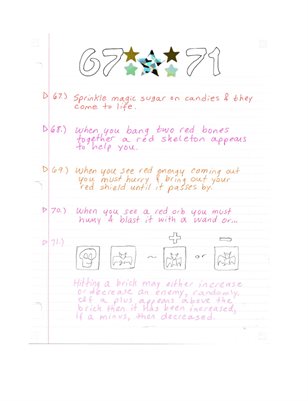 67 71
67.) Sprinkle magic sugar on candies & they
come to life.
68.) When you bang two red bones
together a red skeleton appears
to help you.
69.) When you see red energy coming out
you must hurry & bring out your
red shield until it passes by.
70.) When you see a red orb you must
hurry & blast it with a wand or...
71.)
+ −
~ or
Hitting a brick may either increase
or decrease an enemy, randomly.
If a plus appears above the
brick then it has been increased,
if a minus, then decreased.